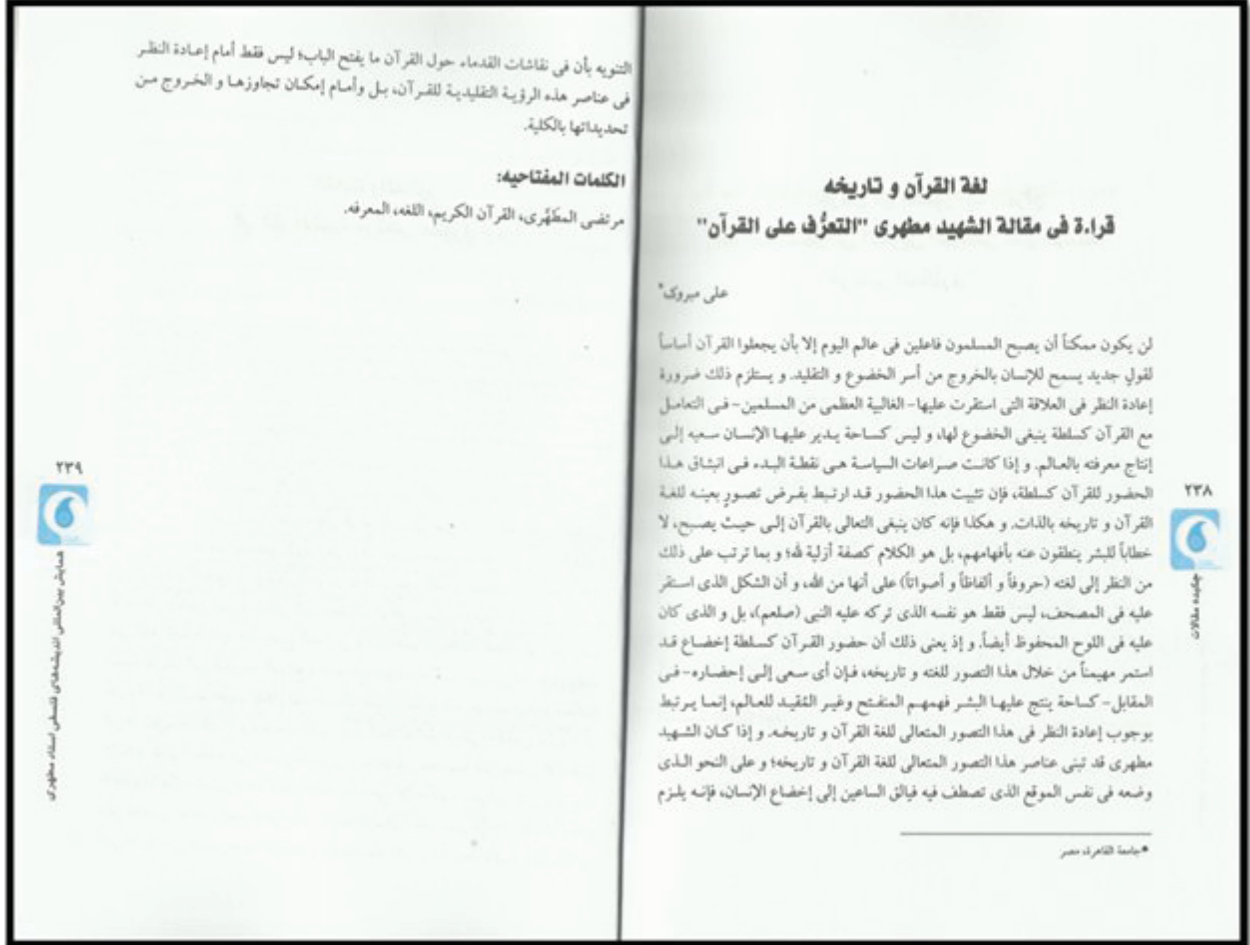 لغة القرآن و تاريخه
قراءة فى مقالة الشهيد مطهرى "التعرُّف على القرآن"
على مبروك*
لن يكون ممكناً أن يصبح المسلمون فاعلين فى عالم اليوم إلا بأن يجعلوا القرآن أساساً
لقولٍ جديد يسمح للإنسان بالخروج من أسر الخضوع و التقليد. و يستلزم ذلك ضرورة
إعادة النظر فى العلاقة التى استقرت عليها-الغالبية العظمى من المسلمين-فى التعامل
مع القرآن كسلطة ينبغى الخضوع لها، و ليس كساحة يدير عليها الإنسان سعيه إلى
إنتاج معرفته بالعالم. و إذا كانت صراعات السياسة هى نقطة البدء فى انبثاق هذا
الحضور للقرآن كسلطة، فإن تثبيت هذا الحضور قد ارتبط بفرض تصورٍ بعينه للغة
القرآن و تاريخه بالذات. و هكذا فإنه كان ينبغى التعالى بالقرآن إلى حيث يصبح، لا
خطاباً للبشر ينطقون عنه بأفهامهم، بل هو الكلام كصفة أزلية لله؛ و بما ترتب على ذلك
من النظر إلى لغته (حروفاً و ألفاظاً و أصواتاً) على أنها من الله، و أن الشكل الذى استقر
عليه فى المصحف، ليس فقط هو نفسه الذى تركه عليه النبى (صلعم)، بل و الذى كان
عليه فى اللوح المحفوظ أيضاً. و إذ يعنى ذلك أن حضور القرآن كسلطة إخضاع قد
استمر مهيمناً من خلال هذا التصور للغته و تاريخه، فإن أى سعى إلى إحضاره-فى
المقابل- كساحة ينتج عليها البشر فهمهم المنفتح وغير المُقيد للعالم، إنما يرتبط
بوجوب إعادة النظر فى هذا التصور المتعالى للغة القرآن و تاريخه. و إذا كان الشهيد
مطهرى قد تبنى عناصر هذا التصور المتعالى للغة القرآن و تاريخه؛ و على النحو الذى
وضعه فى نفس الموقع الذى تصطف فيه فيالق الساعين إلى إخضاع الإنسان، فإنه يلزم
*جامعة القاهرة، مصر
٢٣٨
چکیده مقالات
التنويه بأن فى نقاشات القدماء حول القرآن ما يفتح الباب؛ ليس فقط أمام إعادة النظر
فى عناصر هذه الرؤية التقليدية للقرآن، بل وأمام إمكان تجاوزها و الخروج من
تحديداتها بالكلية.
الكلمات المفتاحيه:
مرتضى المطَهَّرى، القرآن الكريم، اللغه، المعرفه.
٢٣٩
همایش بین‌المللی اندیشه‌های فلسفی استاد مطهری